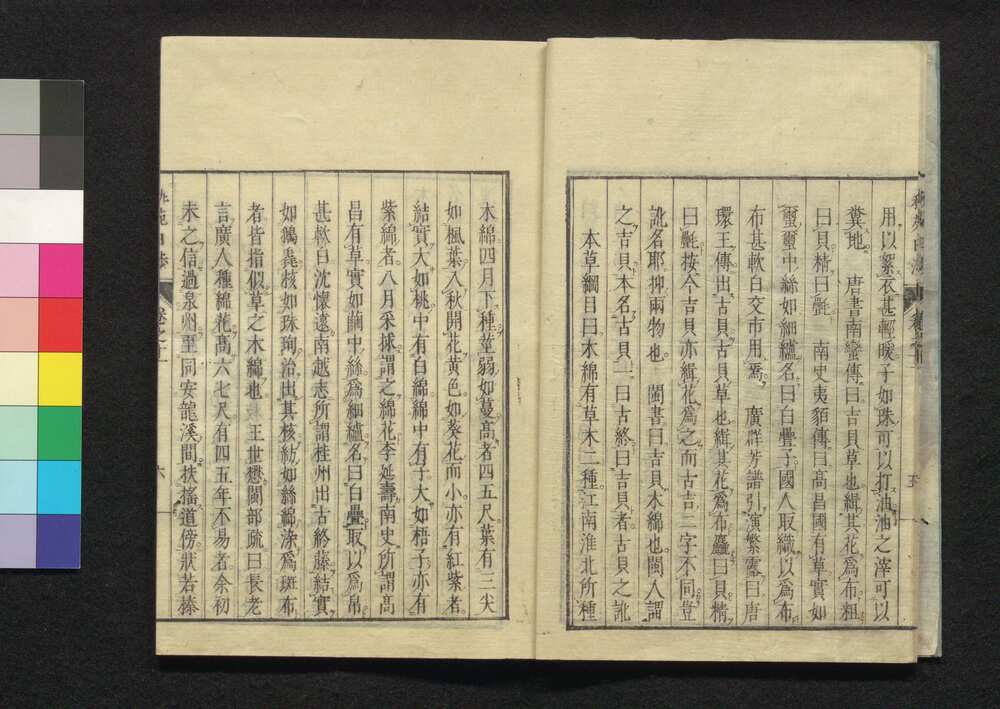 用以絮衣甚輕暖子如珠可以打油油之滓可以
糞地　唐書南蠻傳曰吉貝草也緝其花爲布粗
曰貝精曰㲲　南史夷貊傳曰髙昌國有草實如
璽璽中絲如細纑名曰白疊子國人取織以爲布
布甚軟白交市用焉　廣群芳譜引演繁露曰唐
環王傳出古貝古貝草也緝其花爲布麤曰貝精
曰㲲按今吉貝亦緝花爲之而古吉二字不同豈
訛名耶抑兩物也　閩書曰吉貝木綿也閩人謂
之吉貝本名古貝一曰古終曰吉貝者古貝之訛
本草綱目曰木綿有草木二種江南淮北所種
木綿四月下種莖弱如蔓髙者四五尺葉有三尖
如楓葉入秋開花黄色如葵花而小亦有紅紫者
結實大如桃中有白綿綿中有子大如梧子亦有
紫綿者八月采捄謂之綿花李延壽南史所謂髙
昌有草實如繭中絲爲細纑名曰白疊取以爲帛
甚軟白沈懷遠南越志所謂桂州出古終藤結實
如鵝毳核如珠珣治出其核紡如絲綿染爲斑布
者皆指似草之木綿也　王世懋閩部疏曰長老
言廣人種綿花髙六七尺有四五年不易者余初
未之信過泉州至同安龍溪間扶搖道傍狀若榛
六
五